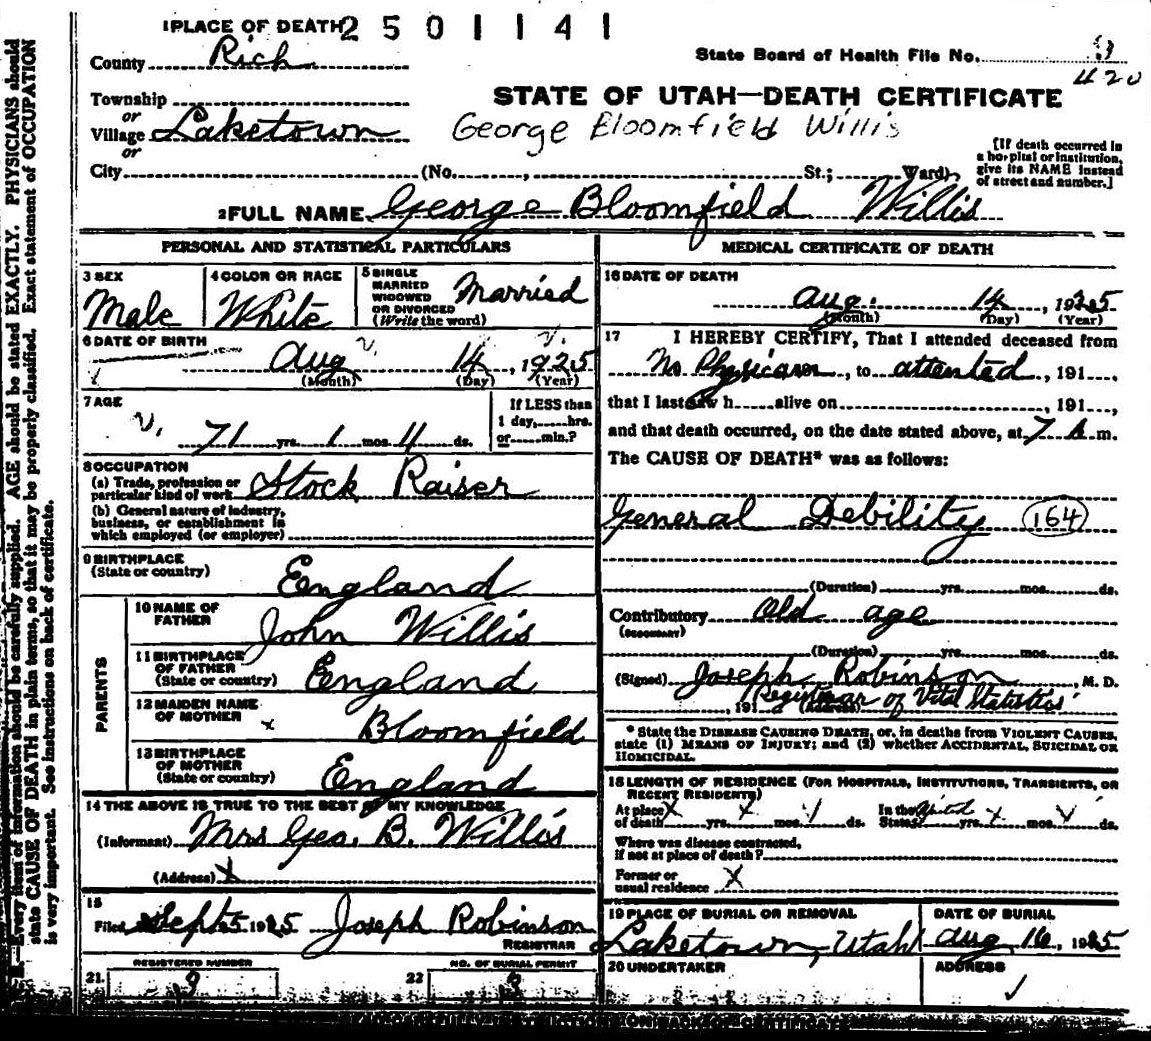 1PLACE OF DEATH 2501141
County Rich
State Board of Health File No. 3
420
Township
or
Village Laketown
or
City (No. , St.; Ward)
STATE OF UTAH—DEATH CERTIFICATE
George Bloomfield Willis
[If death occurred in
a hospital or institution,
give its NAME instead
of street and number.]
2FULL NAME George Bloomfield Willis
PERSONAL AND STATISTICAL PARTICULARS
3 SEX
Male
4 COLOR OR RACE
White
5 SINGLE
MARRIED
WIDOWED
OR DIVORCED
(Write the word)
Married
6 DATE OF BIRTH
Aug 14, 1925
(Month) (Day) (Year)
7 AGE
71 yrs. 1 mos. 11 ds.
If LESS than
1 day, hrs.
or min.?
8 OCCUPATION
(a) Trade, profession or
particular kind of work Stock Raiser
(b) General nature of industry,
business, or establishment in
which employed (or employer)
9 BIRTHPLACE
(State or country) England
PARENTS
10 NAME OF
FATHER John Willis
11 BIRTHPLACE
OF FATHER
(State or country) England
12 MAIDEN NAME
OF MOTHER x Bloomfield
13 BIRTHPLACE
OF MOTHER
(State or country) England
14 THE ABOVE IS TRUE TO THE BEST OF MY KNOWLEDGE
(Informant) Mrs Geo. B. Willis
(Address) x
15
Filed Sept 5 1925 Joseph Robinson
REGISTRAR
REGISTERED NUMBER
21. 3
NO. OF BURIAL PERMIT
22 3
MEDICAL CERTIFICATE OF DEATH
16 DATE OF DEATH
Aug. 14, 1925
(Month) (Day) (Year)
17 I HEREBY CERTIFY, That I attended deceased from
No Physician, to attented, 191 ,
that I last saw h alive on , 191 ,
and that death occurred, on the date stated above, at 7 A m.
The CAUSE OF DEATH* was as follows:
General Debility 164
(Duration) yrs. mos. ds.
Contributory Old age
(SECONDARY)
(Duration) yrs. mos. ds.
(Signed) Joseph Robinson, M. D.
, 191 (Address) Registrar of Vital Statistics
* State the DISEASE CAUSING DEATH, or, in deaths from VIOLENT CAUSES,
state (1) MEANS OF INJURY; and (2) whether ACCIDENTAL, SUICIDAL OR
HOMICIDAL.
18 LENGTH OF RESIDENCE (FOR HOSPITALS, INSTITUTIONS, TRANSIENTS, OR
RECENT RESIDENTS)
At place In the United
of death x yrs. x mos. ds. States? yrs. x mos. ds.
Where was disease contracted,
if not at place of death?
Former or
usual residence X
19 PLACE OF BURIAL OR REMOVAL
Laketown, Utah
DATE OF BURIAL
Aug, 16, 1925
20 UNDERTAKER
ADDRESS
Every item of information should be carefully supplied. AGE should be stated EXACTLY. PHYSICIANS should
state CAUSE OF DEATH in plain terms, so that it may be properly classified. Exact statement of OCCUPATION
is very important. See instructions on back of certificate.